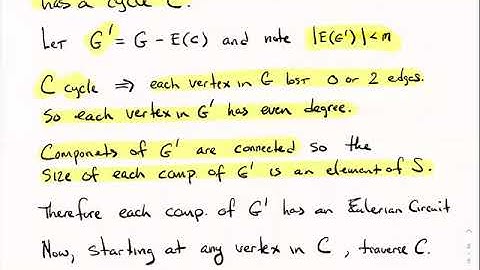 has a cycle C.
Let G' = G - E(C) and note |E(G')| < m
C cycle ⇒ each vertex in G lost 0 or 2 edges.
So each vertex in G' has even degree.
Componets of G' are connected so the
size of each comp. of G' is an element of S.
Therefore each comp. of G' has an Eulerian Circuit
Now, starting at any vertex in C, traverse C.